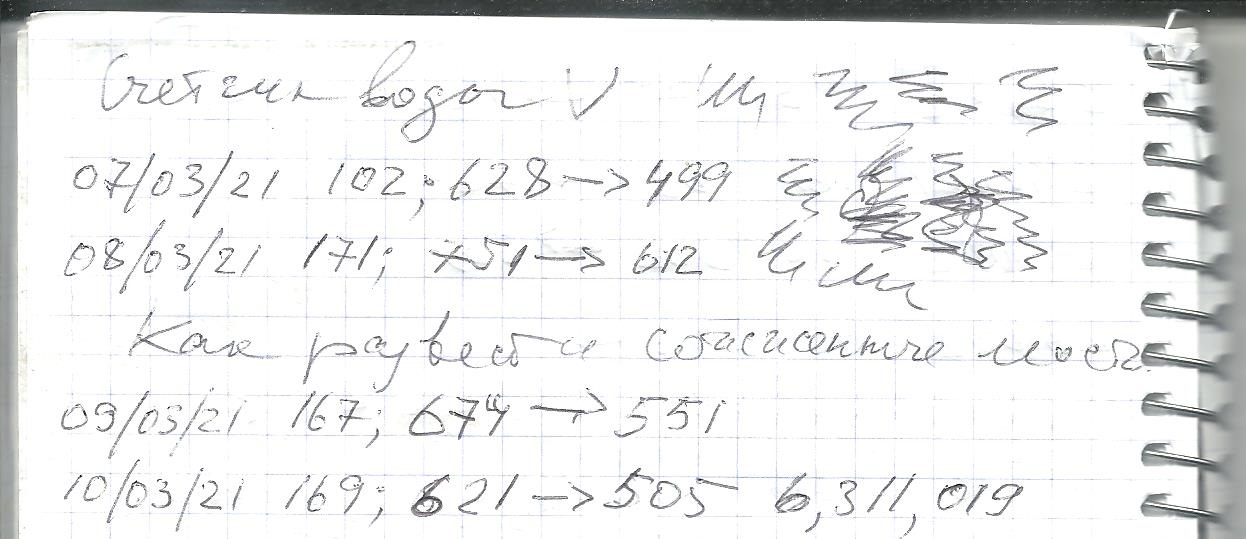 Счетчик воды V
07/03/21 102; 628 → 499
08/03/21 171; 751 → 612
Как развести сожженные мосты
09/03/21 167; 674 → 551
10/03/21 169; 621 → 505 6,311,019